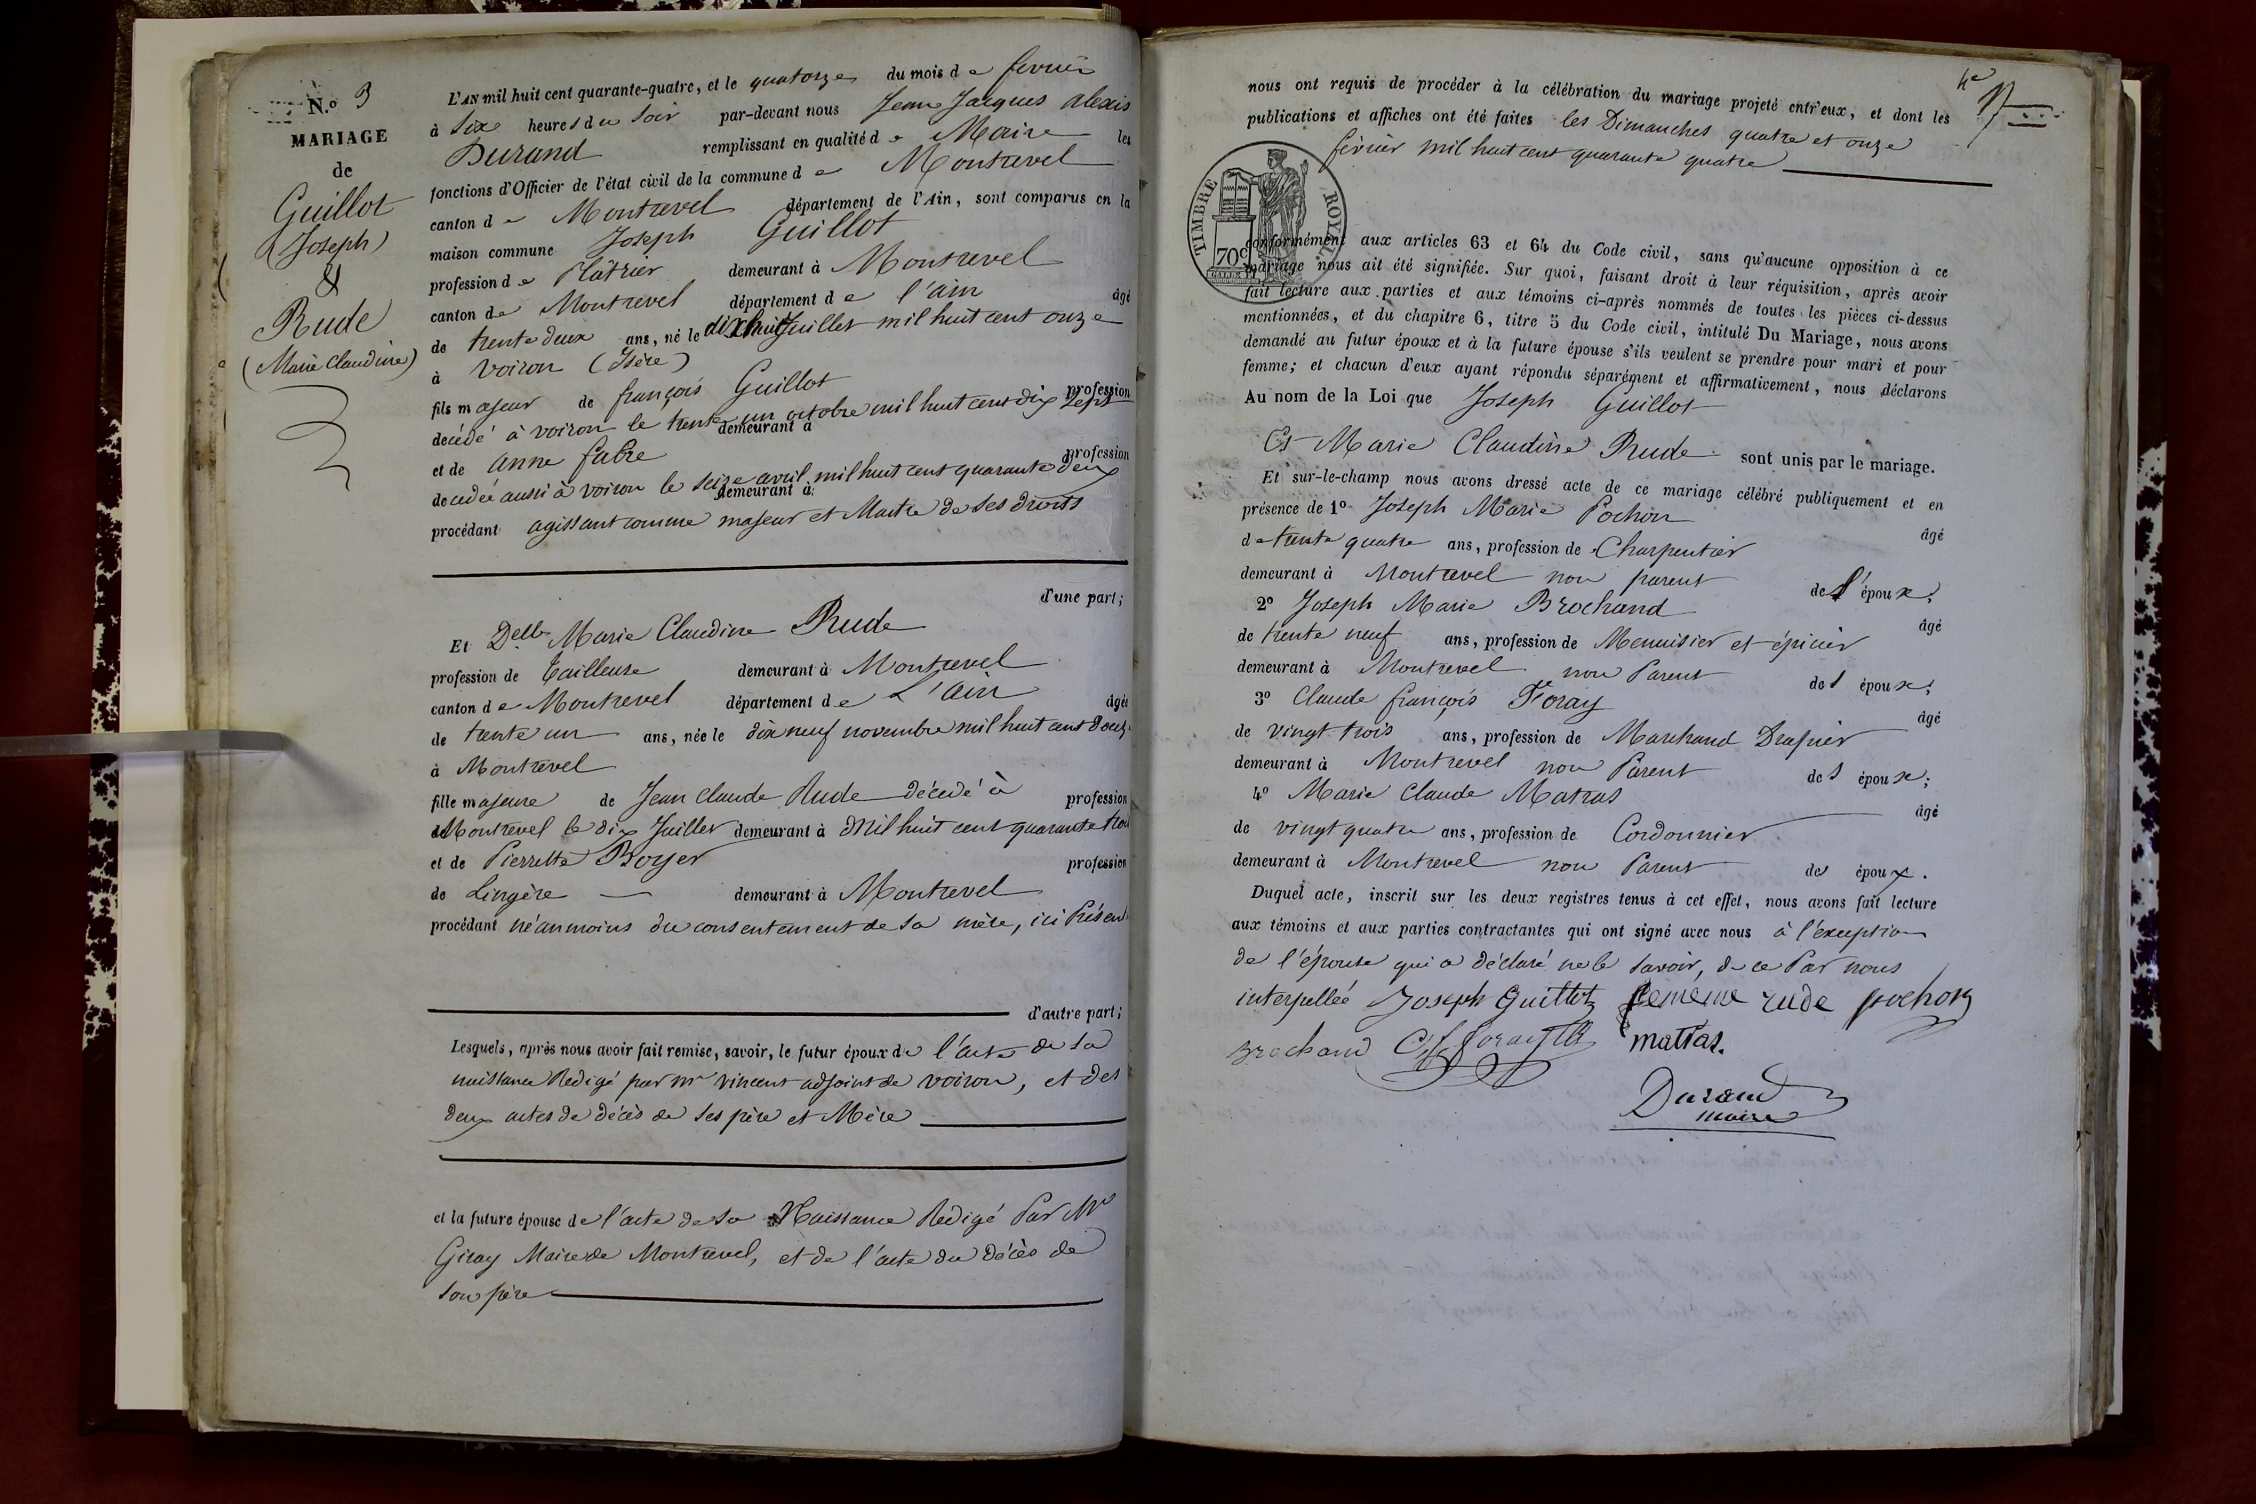 N.º 3
MARIAGE
de
Guillot
(Joseph)
&
Rude
(Marie Claudine)
L'AN mil huit cent quarante-quatre, et le quatorze du mois de fevrier
à Six heures du Soir par-devant nous Jean Jacques alexis
Durand remplissant en qualité de Maire les
fonctions d'Officier de l'état civil de la commune de Montrevel
canton de Montrevel département de l'Ain, sont comparus en la
maison commune Joseph Guillot
profession de Plâtrier demeurant à Montrevel
canton de Montrevel département de l'ain âgé
de trente deux ans, né le dix huit Juillet mil huit cent onze
à Voiron (Isère)
fils majeur de françois Guillot profession
decédé à voiron le trente un octobre mil huit cent dix Sept demeurant à
et de anne fabre profession
decedée aussi à voiron le seize avril mil huit cent quarante deux demeurant à
procédant agissant comme majeur et Maitre de ses droits
d'une part;
Et Delle Marie Claudine Rude
profession de Tailleuse demeurant à Montrevel
canton de Montrevel département de L'ain âgée
de trente un ans, née le dix neuf novembre mil huit cent douze
à Montrevel
fille majeure de Jean Claude Rude décédé à profession
de Montrevel le dix Juillet demeurant à mil huit cent quarante trois
et de Pierrette Boyer profession
de Lingère demeurant à Montrevel
procédant néanmoins du consentement de sa mère, ici Présente
d'autre part;
Lesquels, après nous avoir fait remise, savoir, le futur époux de l'acte de sa
naissance Redigé par mr vincent adjoint de voiron, et des
deux actes de décès de ses père et Mère
et la future épouse de l'acte de sa Naissance Redigé Par Mr
Giray Maire de Montrevel, et de l'acte du décès de
son père
nous ont requis de procéder à la célébration du mariage projeté entr'eux, et dont les
publications et affiches ont été faites les Dimanches quatre et onze
février mil huit cent quarante quatre
TIMBRE ROYAL
70c
conformément aux articles 63 et 64 du Code civil, sans qu'aucune opposition à ce
mariage nous ait été signifiée. Sur quoi, faisant droit à leur réquisition, après avoir
fait lecture aux parties et aux témoins ci-après nommés de toutes les pièces ci-dessus
mentionnées, et du chapitre 6, titre 5 du Code civil, intitulé Du Mariage, nous avons
demandé au futur époux et à la future épouse s'ils veulent se prendre pour mari et pour
femme; et chacun d'eux ayant répondu séparément et affirmativement, nous déclarons
Au nom de la Loi que Joseph Guillot
Et Marie Claudine Rude sont unis par le mariage.
Et sur-le-champ nous avons dressé acte de ce mariage célébré publiquement et en
présence de 1º Joseph Marie Pochon âgé
de trente quatre ans, profession de Charpentier
demeurant à Montrevel non parent de l'époux;
2º Joseph Marie Brochand âgé
de trente neuf ans, profession de Menuisier et épicier
demeurant à Montrevel non Parent des époux;
3º Claude françois Foray âgé
de vingt trois ans, profession de Marchand Drapier
demeurant à Montrevel non Parent des époux;
4º Marie Claude Matras âgé
de vingt quatre ans, profession de Cordonnier
demeurant à Montrevel non Parent des époux.
Duquel acte, inscrit sur les deux registres tenus à cet effet, nous avons fait lecture
aux témoins et aux parties contractantes qui ont signé avec nous à l'exception
de l'épouse qui a déclaré ne le savoir, de ce Par nous
interpellée Joseph Guillot rude pochon
brochand matras.
Durand
maire